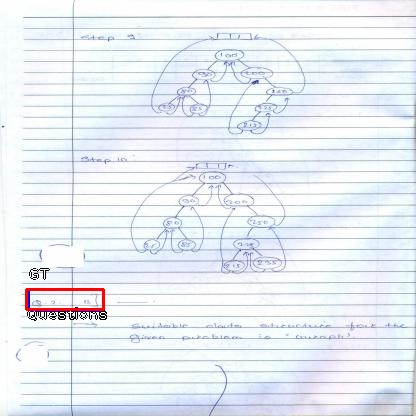 Step 9:
100
90
200
80
250
225
215
Step 10:
100
90
200
80
250
85
215 235
GT
Q. 2. B)
Questions
Suitable data structure for the
given problem is "Graph".